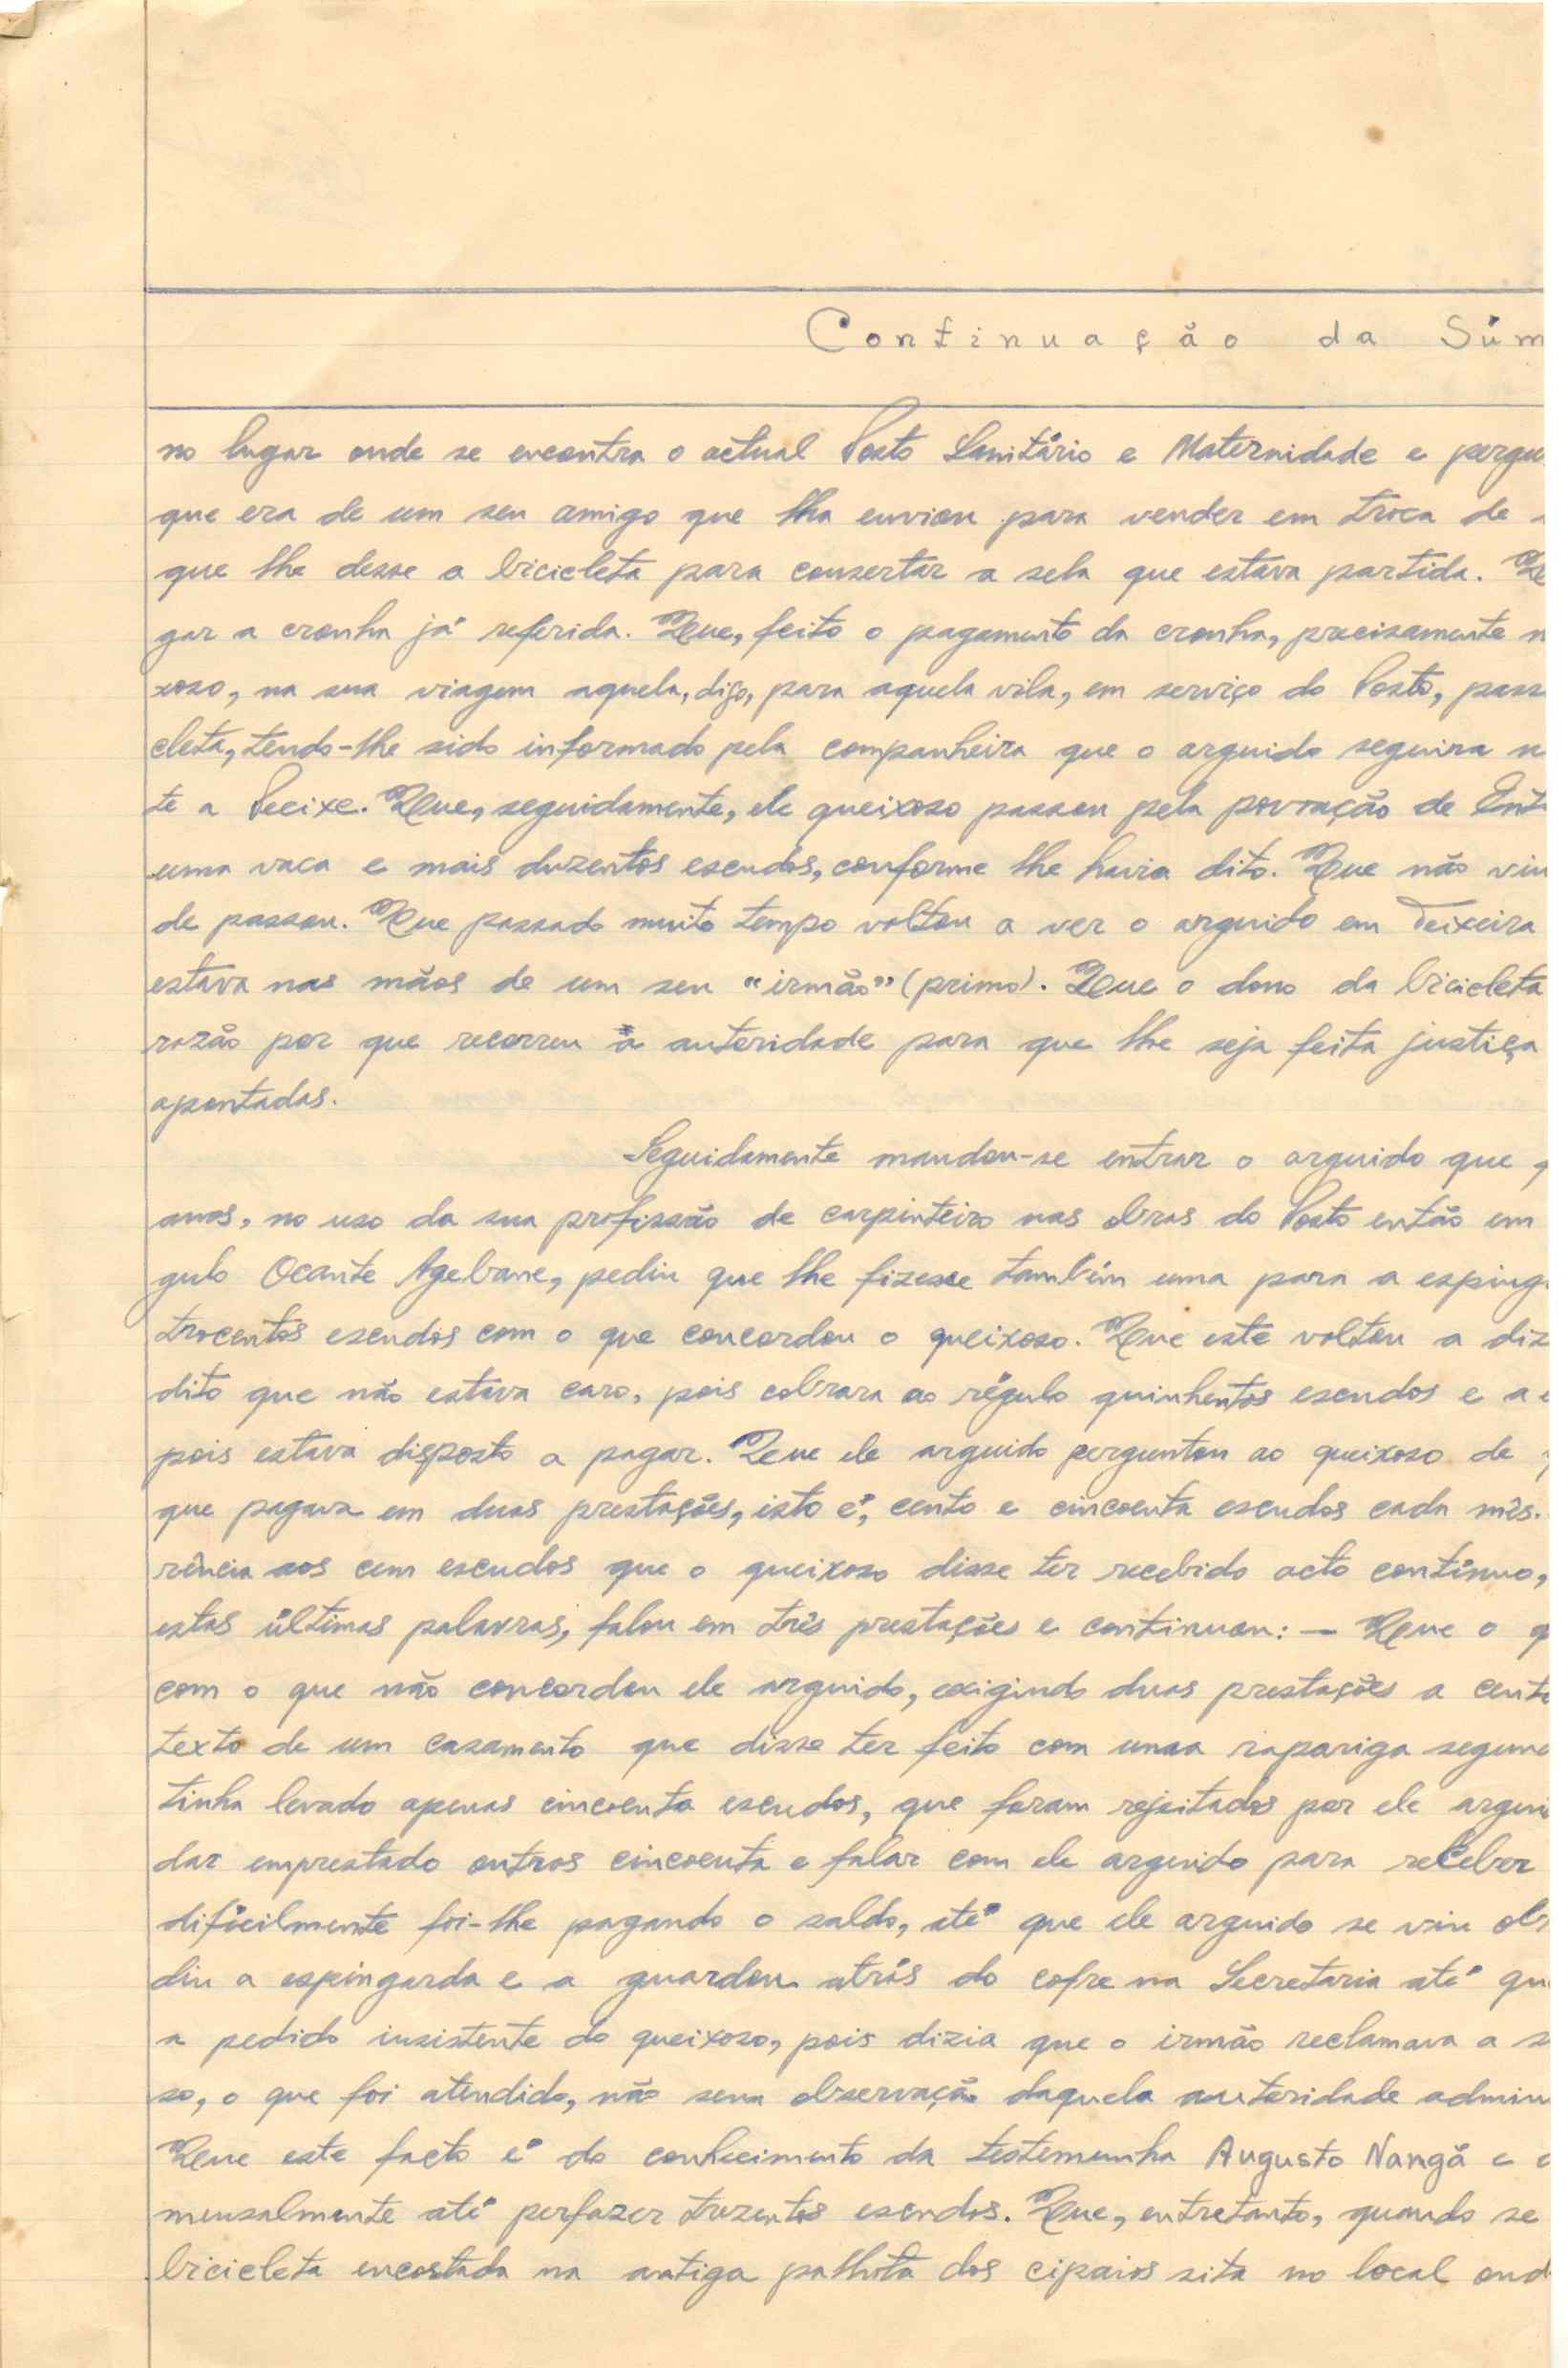 Continuação da Súm
no lugar onde se encontra o actual Posto Sanitário e Maternidade e pergu
que era de um seu amigo que lha enviou para vender em troca de
que lhe desse a bicicleta para consertar a sela que estava partida. Que
gar a cronha já referida. Que, feito o pagamento da cronha, precisamente n
xoso, na sua viagem aquela, digo, para aquela vila, em serviço do Posto, pass
cleta, tendo-lhe sido informado pela companheira que o arguido seguira n
te a Pecixe. Que, seguidamente, ele queixoso passou pela povoação de Ent
uma vaca e mais duzentos escudos, conforme lhe havia dito. Que não viu
de passou. Que passado muito tempo voltou a ver o arguido em Teixeira
estava nas mãos de um seu "irmão" (primo). Que o dono da bicicleta
razão por que recorreu à autoridade para que lhe seja feita justiça
apontadas.
Seguidamente mandou-se entrar o arguido que
anos, no uso da sua profissão de carpinteiro nas obras do Posto então em
gulo Ocante Agebane, pediu que lhe fizesse também uma para a esping
trocentos escudos com o que concordou o queixoso. Que este voltou a diz
dito que não estava caro, pois cobrara ao régulo quinhentos escudos e a
pois estava disposto a pagar. Que ele arguido perguntou ao queixoso de
que pagava em duas prestações, isto é, cento e cincoenta escudos cada mês.
rência aos cem escudos que o queixoso disse ter recebido acto contínuo,
estas últimas palavras, falou em três prestações e continuou: — Que o q
com o que não concordou ele arguido, exigindo duas prestações a cento
texto de um casamento que disse ter feito com umaa rapariga segund
tinha levado apenas cincoenta escudos, que foram rejeitados por ele argui
dar emprestado outros cincoenta e falar com ele arguido para receber
dificilmente foi-lhe pagando o saldo, até que ele arguido se viu ob
diu a espingarda e a guardou atrás do cofre na Secretaria até qu
a pedido insistente do queixoso, pois dizia que o irmão reclamava a s
so, o que foi atendido, não sem observação daquela autoridade admin
Que este facto é do conhecimento da testemunha Augusto Nangã e
mensalmente até perfazer trezentos escudos. Que, entretanto, quando se
bicicleta encostada na antiga palhota dos cipaios sita no local ond